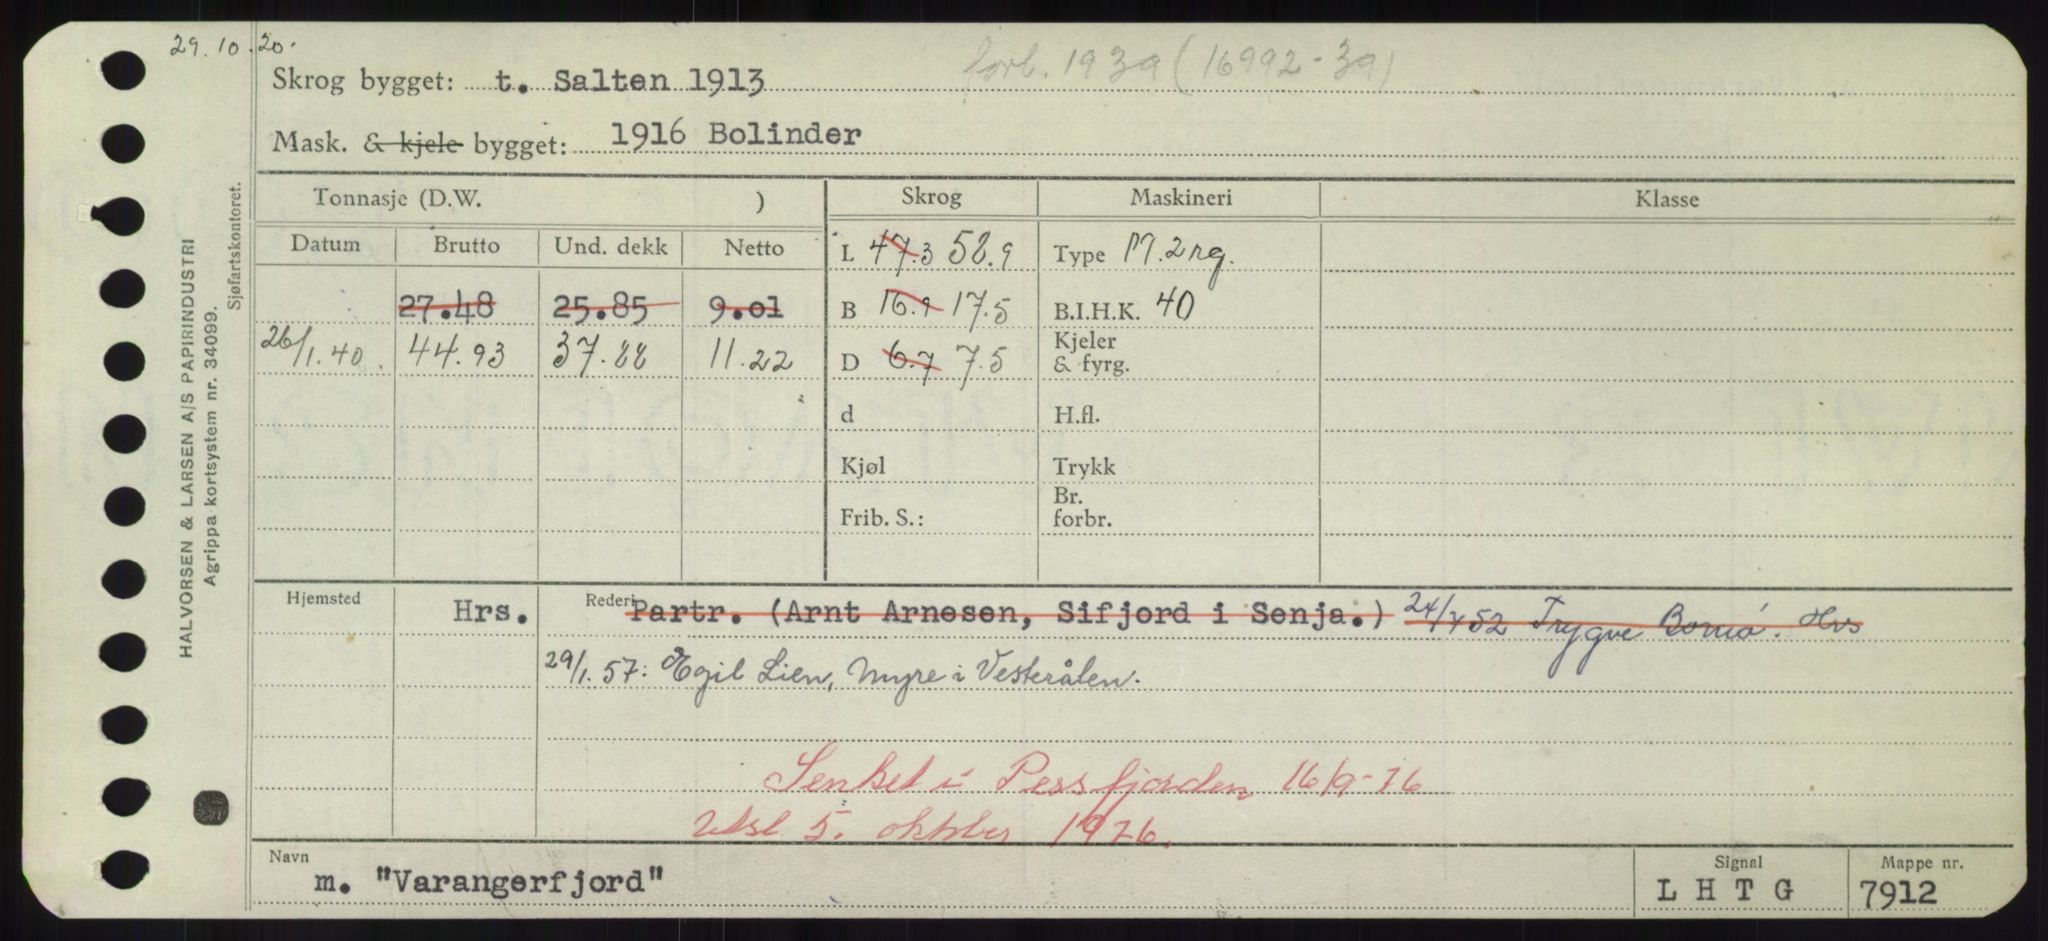 29.10.20.
Skrog bygget: t. Salten 1913 forl. 1939 (16992-39)
Mask. & kjele bygget: 1916 Bolinder
HALVORSEN & LARSEN A/S PAPIRINDUSTRI
Agrippa kortsystem nr. 34099.
Sjøfartskontoret.
Tonnasje (D.W. ) Skrog Maskineri Klasse
Datum Brutto Und. dekk Netto L 47.3 52.9 Type M. 2rg.
27.48 25.85 9.01 B 16.9 17.5 B.I.H.K. 40
26/1.40. 44.93 37.88 11.22 D 6.7 7.5 Kjeler
& fyrg.
d H.fl.
Kjøl Trykk
Frib. S.: Br.
forbr.
Hjemsted Hrs. Rederi Partr. (Arnt Arnesen, Sifjord i Senja.) 24/7 52 Trygve Bomø. Hrs
29/1. 57: Egil Lien, Myre i Vesterålen.
Senket i Persfjorden 16/9-76
5. oktober 1976.
Navn m. "Varangerfjord" Signal L H T G Mappe nr. 7912